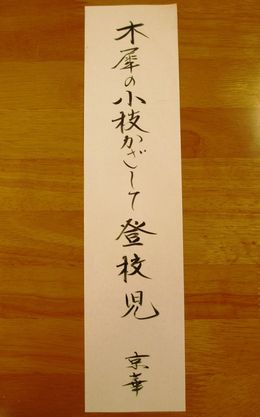 木犀の小枝かざして登校児
京華